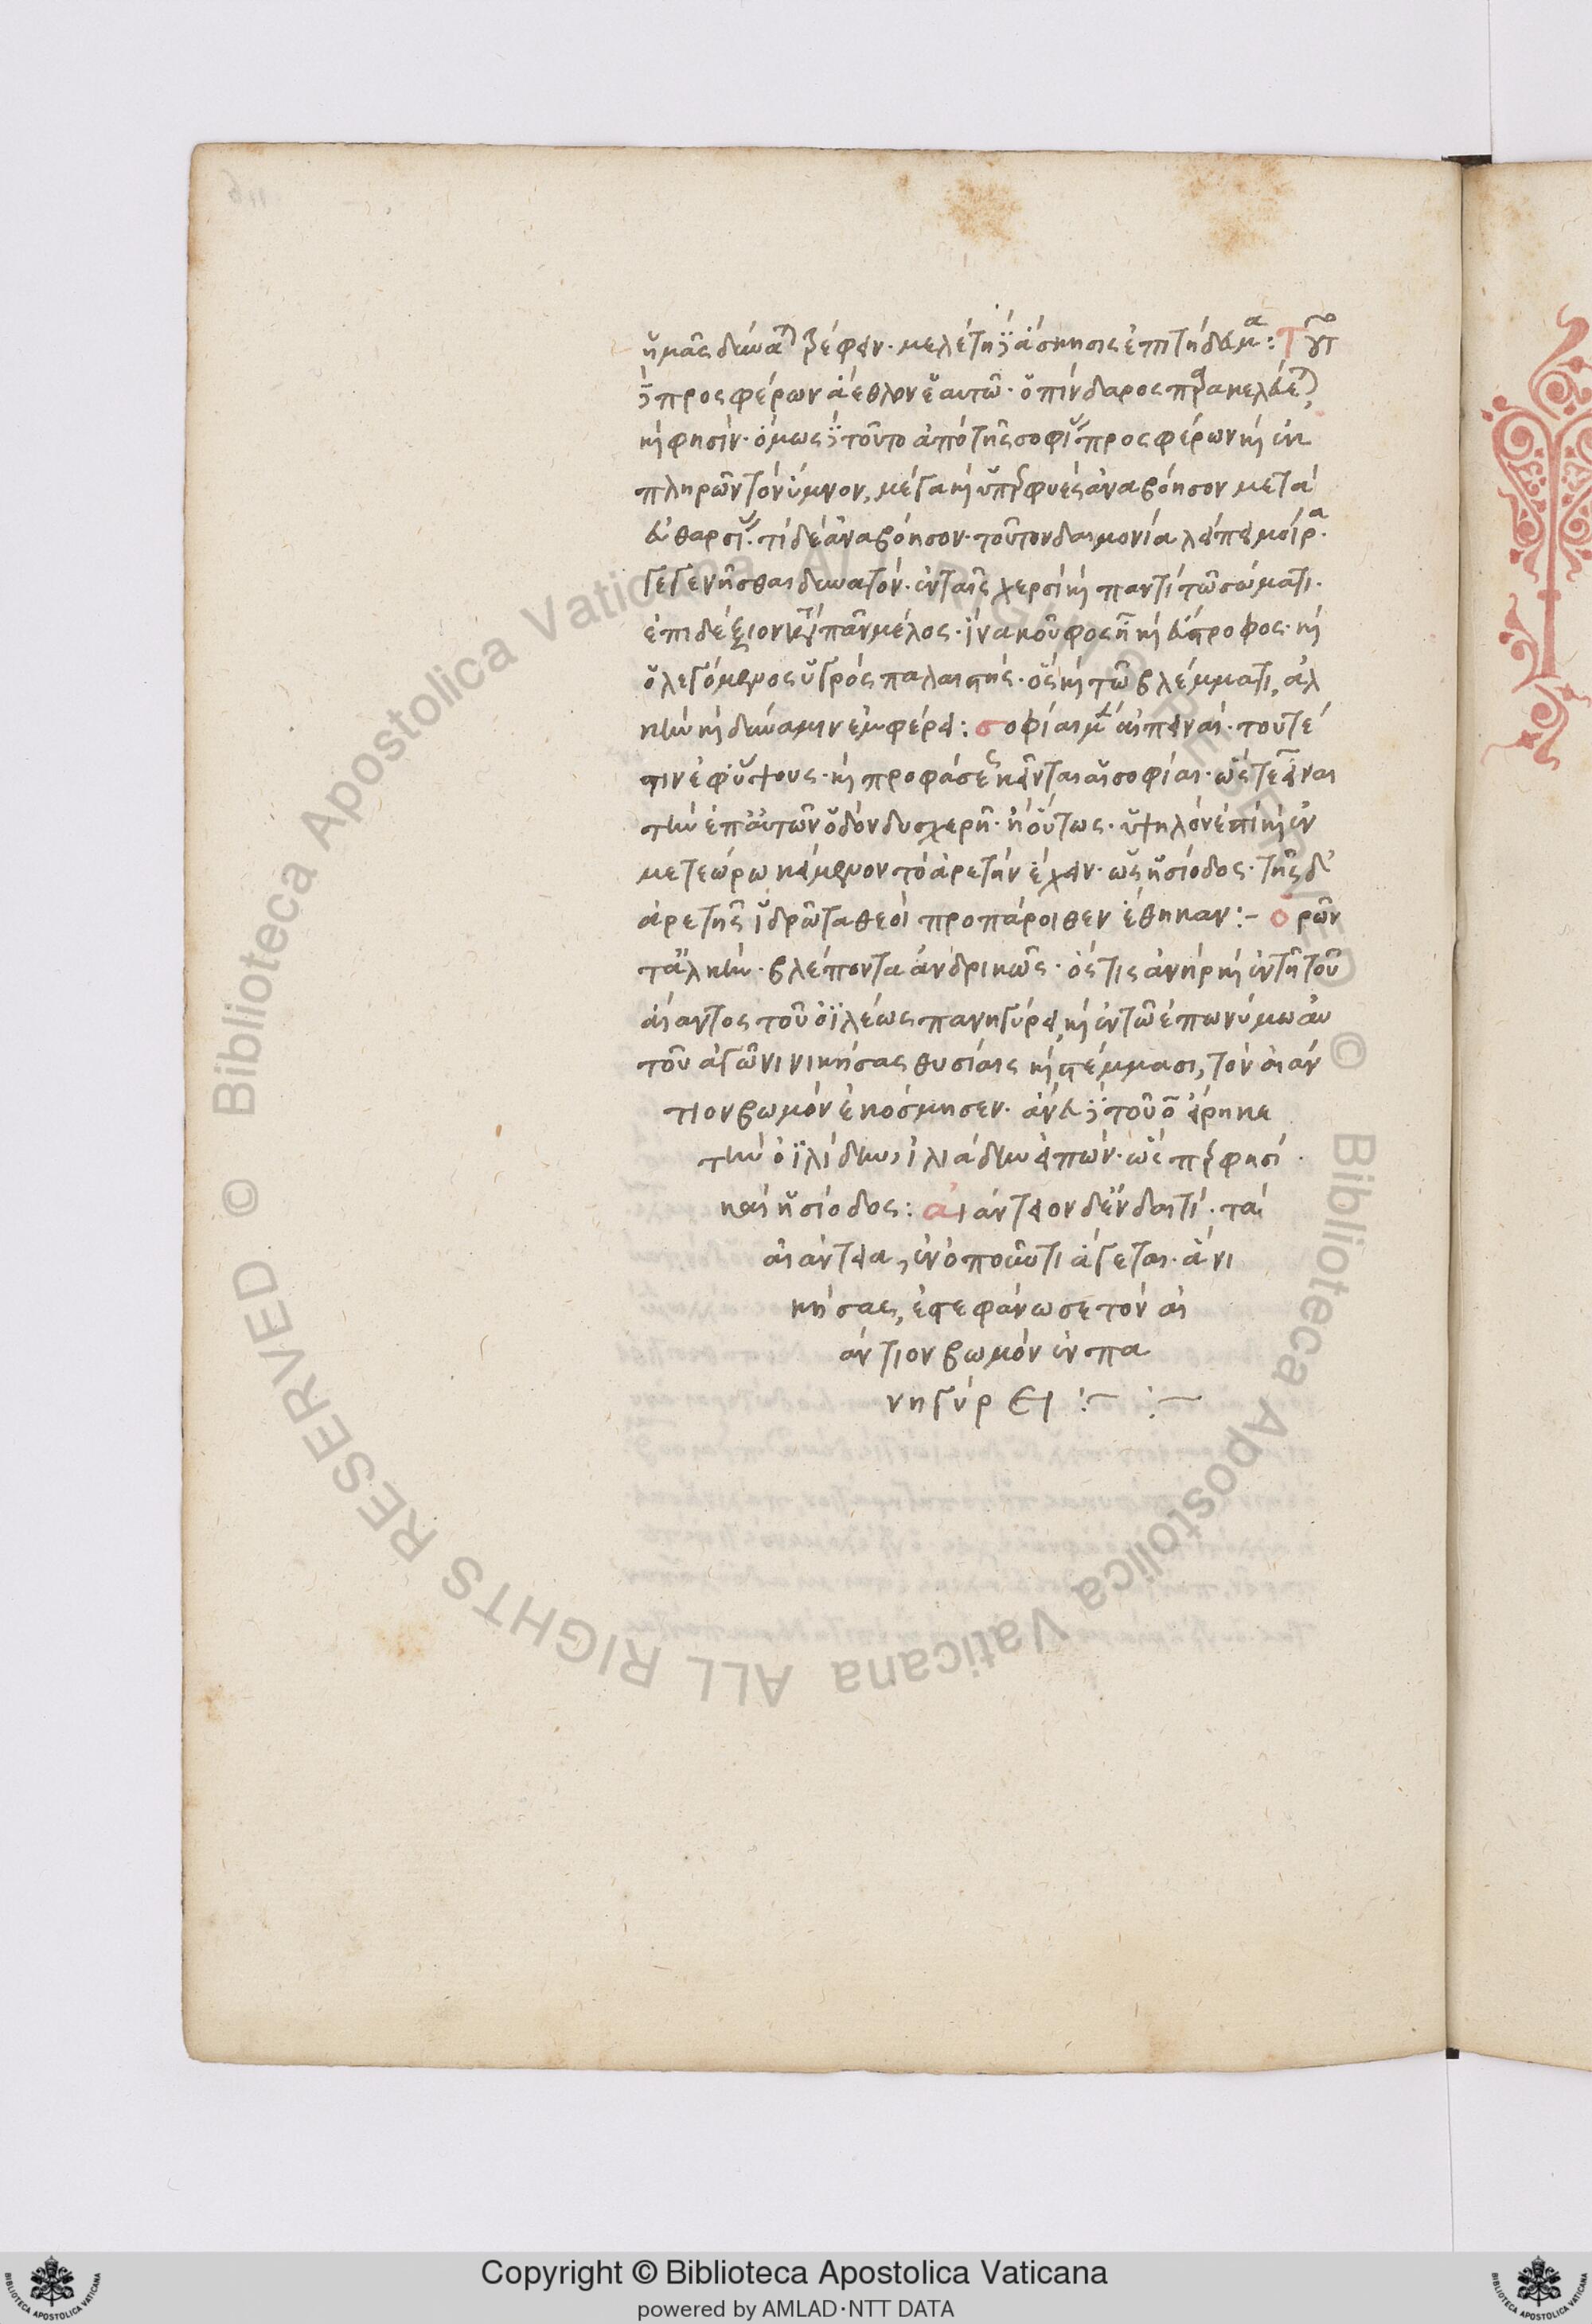 ἡμᾶς δύναται τρέφειν· μελέτη δὲ ἄσκησις ἐπιτήδευμα: Τοῦτο
δὲ προσφέρων ἄεθλον ἑαυτῷ· ὁ πίνδαρος παρακελεύεται
καὶ φησίν· ὅμως δὲ τοῦτο ἀπὸ τῆς σοφίας προσφέρων καὶ ἐκ
πληρῶν τὸν ὕμνον, μέγα καὶ ὑπερφυὲς ἀναβόησον μετὰ
εὐθαρσίας· τί δὲ ἀναβόησον· τοῦτον δαιμονίαι λέπει μοίρα·
γεγενῆσθαι δυνατόν· ἐν ταῖς χερσὶ καὶ παντὶ τῷ σώματι·
ἐπιδέξιον κατὰ πᾶν μέλος· ἵνα κοῦφος ἦ καὶ εὔστροφος· καὶ
ὁ λεγόμενος ὑγρὸς παλαιστής· ὃς καὶ τῷ βλέμματι, ἀλ
κὴν καὶ δύναμιν ἐμφέρει: σοφίαι μὲν αἰπειναί· τουτέ
στιν ἐφ ὕψους· καὶ προφάσεως κεῖνται αἱ σοφίαι· ὥστε εἶναι
τὴν ἐπ αὐτῶν ὁδὸν δυσχερῆ· ἢ οὕτως· ὑψηλόν ἐστι καὶ ἐν
μετεώρω κείμενον τὸ ἀρετὴν ἔχειν· ὡς ἡσίοδος· τῆς δ'
ἀρετῆς ἱδρῶτα θεοὶ προπάροιθεν ἔθηκαν:– ὁρῶν
τ' ἀλκήν· βλέποντα ἀνδρικῶς· ὅστις ἀνὴρ καὶ ἐν τῇ τοῦ
αἴαντος τοῦ ὀϊλέως πανηγύρει, καὶ ἐν τῷ ἐπωνύμω αὐ
τοῦ ἀγῶνι νικήσας θυσίαις καὶ στέμμασι, τὸν αἰάν
τιον βωμὸν ἐκόσμησεν· ἀντὶ δὲ τοῦ ὃ εἴρηκε
τὴν ὀϊλίδην, ἰλιάδην εἰπών· ὥσπερ φησὶ
καὶ ἡσίοδος: αἰάντειον δ' ἐν δαιτί· τὰ
αἰάντεια, ἐν ὀποῦντι ἄγεται· ἃ νι
κήσας, ἐστεφάνωσε τὸν αἰ
άντιον βωμὸν ἐν πα
νηγύρει :~ :~
Copyright © Biblioteca Apostolica Vaticana
powered by AMLAD·NTT DATA
© Biblioteca Apostolica Vaticana ALL RIGHTS RESERVED © Biblioteca Apostolica Vaticana ALL RIGHTS RESERVED